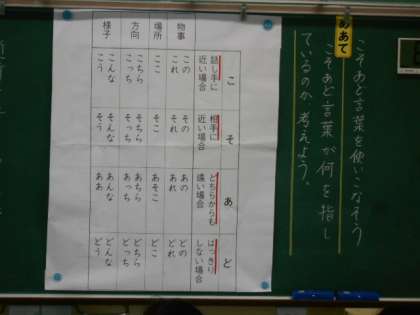 めあて
こそあど言葉を使いこなそう
こそあど言葉が何を指し
ているのか、考えよう。
こ
そ
あ
ど
話し手に近い場合
相手に近い場合
どちらからも遠い場合
はっきりしない場合
物事
この これ
その それ
あの あれ
どの どれ
場所
ここ
そこ
あそこ
どこ
方向
こちら こっち
そちら そっち
あちら あっち
どちら どっち
様子
こんな こう
そんな そう
あんな ああ
どんな どう